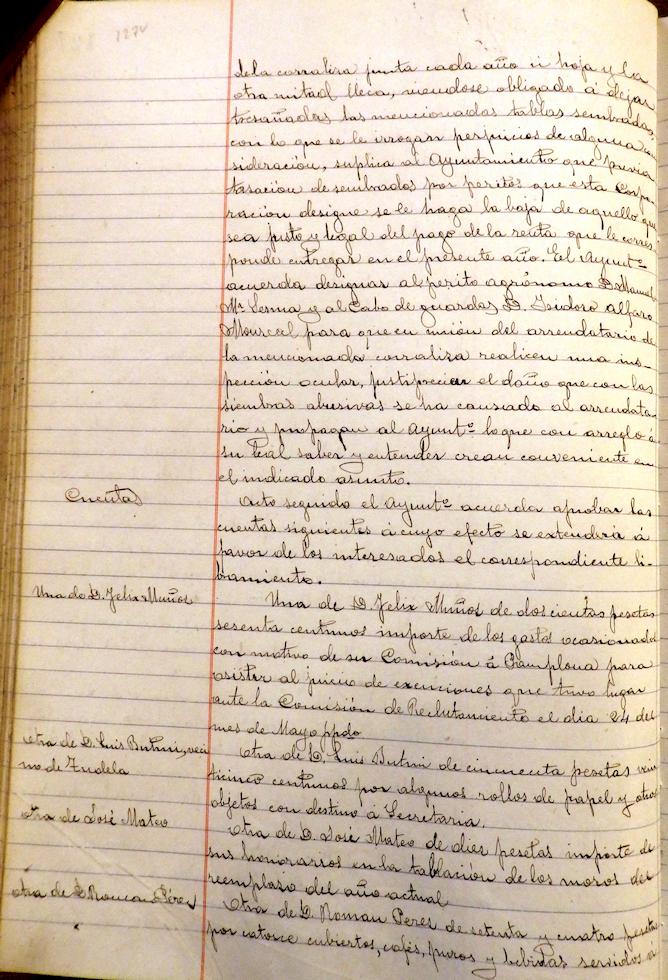 127v
de la corraliza junta cada año ú hoja y la
otra mitad lleca, viendose obligado á dejar
tresañadas las mencionadas tablas sembradas,
con lo que se le irrogan perjuicios de alguna con
sideración, suplica al Ayuntamiento que previa
tasación de sembrados por peritos que esta Corpo
ración designe se le haga la baja de aquello que
sea justo y legal del pago de la renta que le corres
ponde entregar en el presente año. El Ayuntº
acuerda designar al perito agrónomo D. Manuel
Mª Lesma y al Cabo de guardas D. Isidoro Alfaro
para que en unión del arrendatario de
la mencionada corraliza realicen una ins-
pección ocular, justiprecien el daño que con las
siembras abusivas se ha causado al arrendata
rio y propongan al Ayuntº lo que con arreglo á
su leal saber y entender crean conveniente en
el indicado asunto.
Cuentas
Acto seguido el Ayuntº acuerda aprobar las
cuentas siguientes á cuyo efecto se extenderá á
favor de los interesados el correspondiente li-
bramiento.
Una de D. Felix Muños
Una de D. Felix Muños de dos cientas pesetas
sesenta centimos importe de los gastos ocasionados
con motivo de su Comisión á Pamplona para
asistir al juicio de exenciones que tuvo lugar
ante la Comisión de Reclutamiento el dia 24 del
mes de Mayo ppdo
Otra de D. Luis Butini, veci
no de Tudela
Otra de D. Luis Butini de cincuenta pesetas vein
ticinco centimos por algunos rollos de papel y otros
objetos con destino á Secretaría.
Otra de José Mateo
Otra de D. José Mateo de dies pesetas importe de
sus honorarios en la tablación de los mosos del
reemplaso del año actual
Otra de D. Roman Péres
Otra de D. Roman Peres de setenta y cuatro pesetas
por catorce cubiertos, cafés, puros y bebidas servidos á